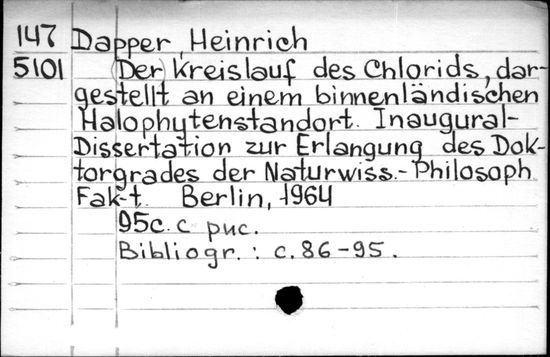 147 Dapper, Heinrich
5101 (Der) Kreislauf des Chlorids, dar-
gestellt an einem binnenländischen
Halophytenstandort. Inaugural-
Dissertation zur Erlangung des Dok-
torgrades der Naturwiss.-Philosoph.
Fak-t. Berlin, 1964
95c. с рис.
Bibliogr.: c. 86-95.